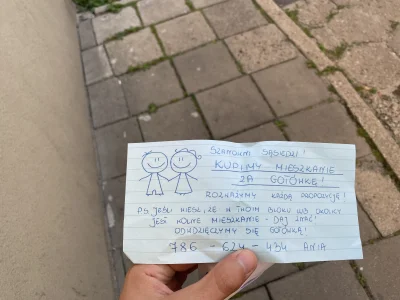 SZANOWNI SĄSIEDZI!
KUPIMY MIESZKANIE
ZA GOTÓWKĘ!
ROZWAŻYMY KAŻDĄ PROPOZYCJĘ!
PS. JEŚLI WIESZ, ŻE W TWOIM BLOKU LUB OKOLICY
JEST WOLNE MIESZKANIE - DAJ ZNAĆ!
ODWDZIĘCZYMY SIĘ GOTÓWKĄ!
786 - 624 - 434 ANIA